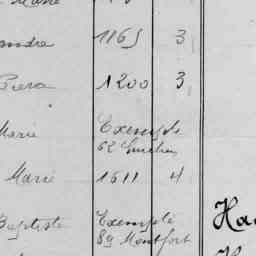 Marie
andre 1165 3
Piera 1200 3
Marie Exempte
62
Marie 1611 4
Baptiste Exempte
89 Montfort
Ha